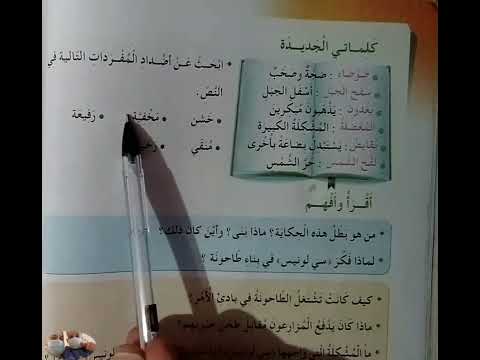 كلماتي الجديدة
ضوضاء: ضجة وصخب
سفح الجبل: أسفل الجبل
يغدون: يذهبون مبكرين
المعضلة: المشكلة الكبيرة
يقايض: يستبدل بضاعة بأخرى
لفح الشمس: حر الشمس
ابحث عن أضداد المفردات التالية في
النص.
خشن • مخفية • رفيعة
منقي •
أقرأ وأفهم
من هو بطل هذه الحكاية؟ ماذا بنى؟ وأين كان ذلك؟
لماذا فكر «سي لونيس» في بناء طاحونة؟
كيف كانت تشتغل الطاحونة في بادئ الأمر؟
ماذا كان يدفع المزارعون مقابل طحن
ما المشكلة